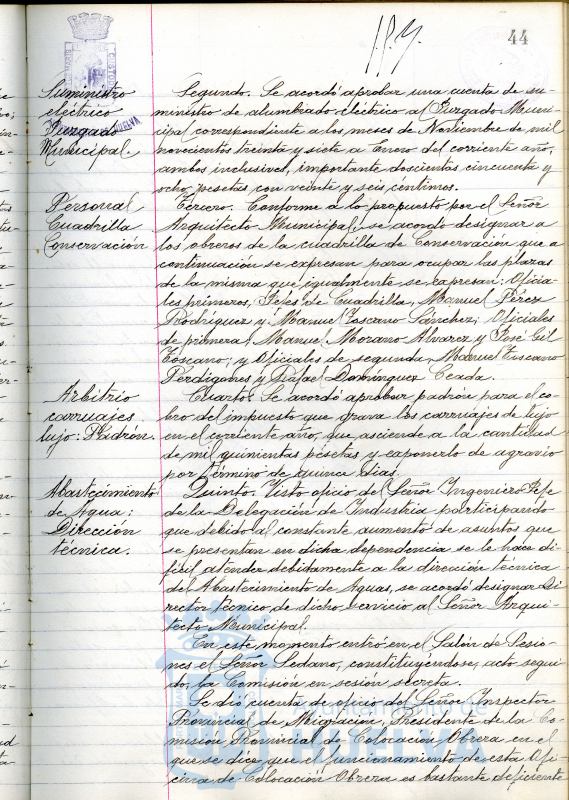 44
Suministro
eléctrico
Juzgado
Municipal.
Segundo. Se acordó aprobar una cuenta de su-
ministro de alumbrado eléctrico al Juzgado Muni-
cipal correspondiente a los meses de Noviembre de mil
novecientos treinta y siete a Enero del corriente año,
ambos inclusives, importante doscientas cincuenta y
ocho pesetas con veinte y seis centimos.
Personal
Cuadrilla
Conservación
Tercero. Conforme a lo propuesto por el Señor
Arquitecto Municipal, se acordó designar a
los obreros de la cuadrilla de Conservación que a
continuación se expresan para ocupar las plazas
de la misma que igualmente se expresan: Oficia-
les primeros, Jefes de Cuadrilla, Manuel Pérez
Rodríguez y Manuel Toscano Sánchez; Oficiales
de primera, Manuel Morano Alvarez y José Gil
Toscano; y Oficiales de segunda, Manuel Toscano
Perdigones y Rafael Domínguez Ceada.
Arbitrio
carruajes
lujo: Padrón.
Cuarto. Se acordó aprobar padrón para el co-
bro del impuesto que grava los carruajes de lujo
en el corriente año, que asciende a la cantidad
de mil quinientas pesetas y exponerlo de agravio
por término de quince días.
Abastecimiento
de Agua:
Dirección
técnica.
Quinto. Visto oficio del Señor Ingeniero Jefe
de la Delegación de Industria participando
que debido al constante aumento de asuntos que
se presentan en dicha dependencia se le hace di-
fícil atender debitamente a la dirección técnica
del Abastecimiento de Aguas, se acordó designar Di-
rector técnico de dicho servicio al Señor Arqui-
tecto Municipal.
En este momento entró en el Salón de Sesio-
nes el Señor Sedano, constituyéndose, acto segui-
do, la Comisión en sesión secreta.
Se dió cuenta de oficio del Señor Inspector
Provincial de Migración, Presidente de la Co-
misión Provincial de Colocación Obrera en el
que se dice que el funcionamiento de esta Ofi-
cina de Colocación Obrera es bastante deficiente
HUELVA